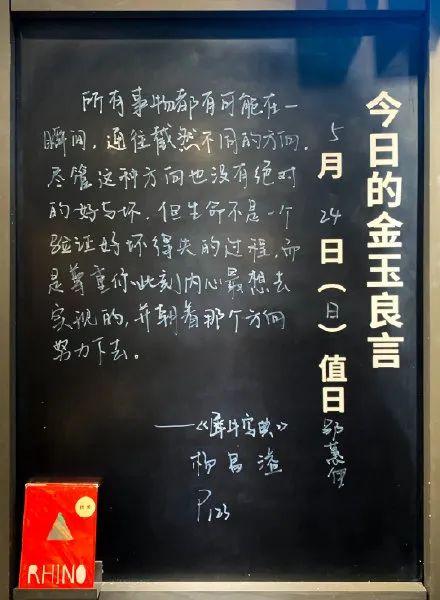 今日的金玉良言
5月24日(日)值日
所有事物都有可能在一
瞬间，通往截然不同的方向。
尽管这种方向也没有绝对
的好与坏，但生命不是一个
验证好坏得失的过程，而
是尊重你此刻内心最想去
实现的，并朝着那个方向
努力下去。
——《犀牛字典》
杨昌溢
P123
RHINO